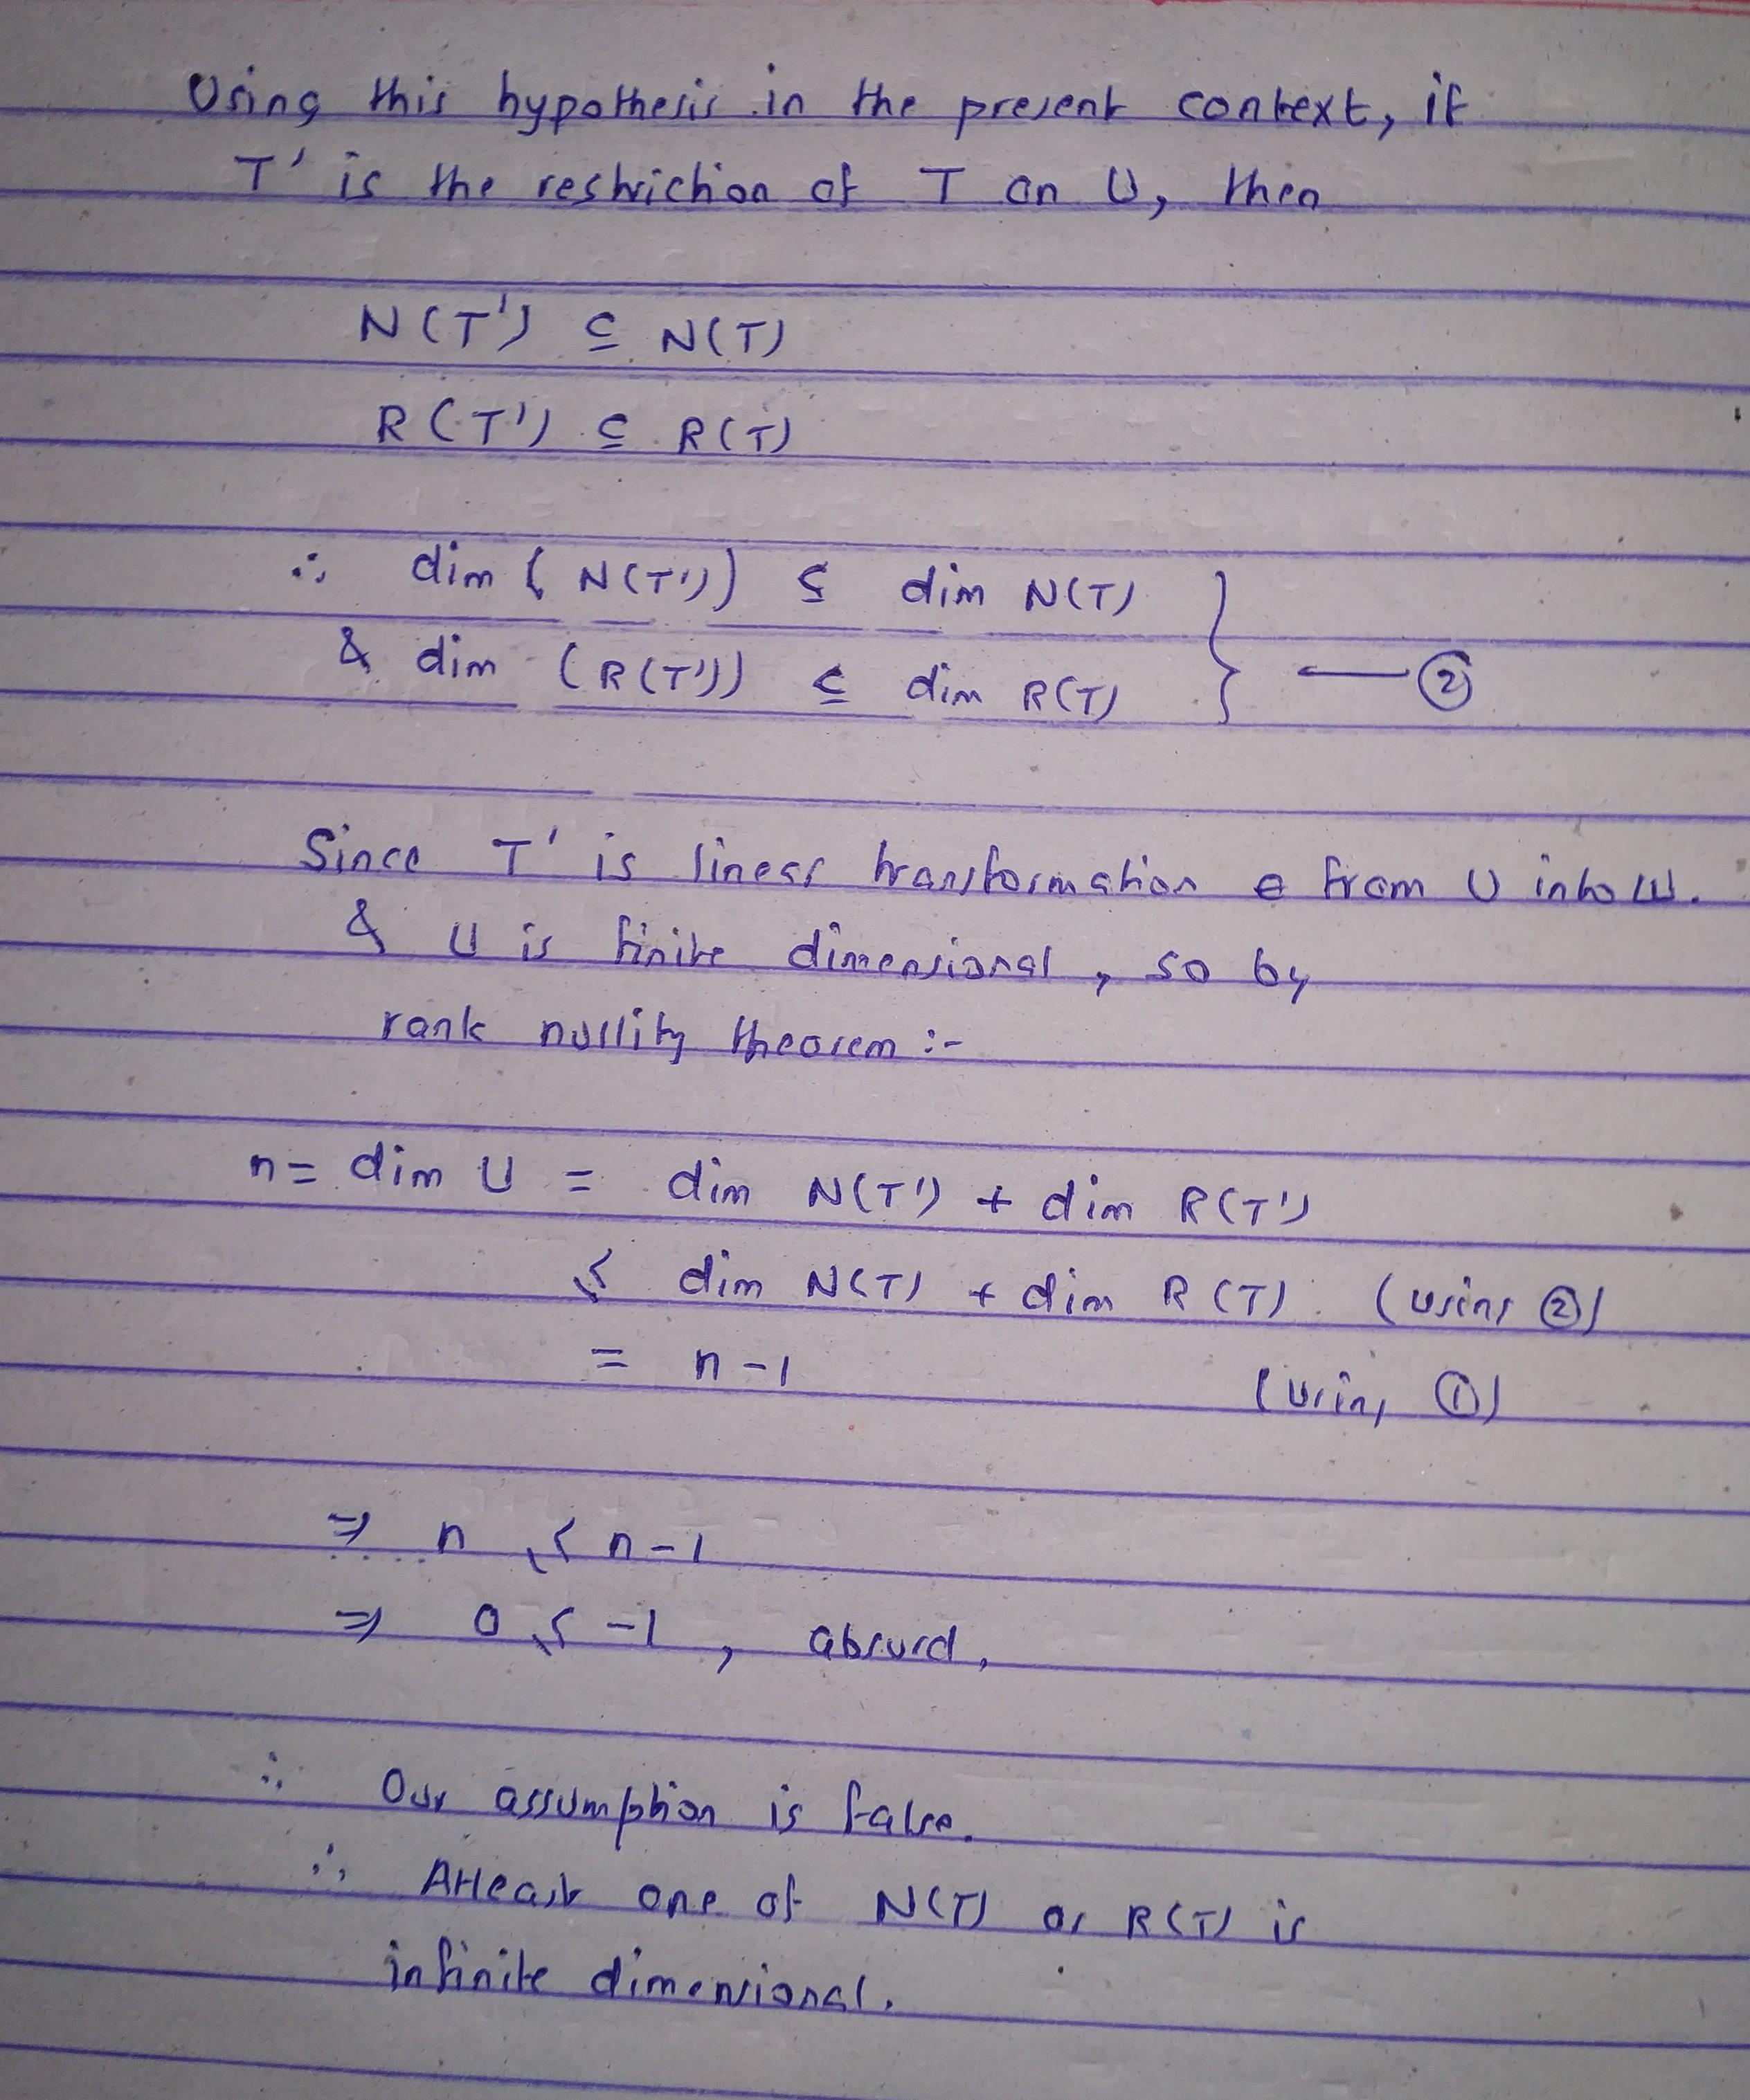 Using this hypothesis in the present context, if
T' is the restriction of T on U, then
N(T') ⊆ N(T)
R(T') ⊆ R(T)
∴ dim (N(T')) ≤ dim N(T)
& dim (R(T')) ≤ dim R(T) } — ②
Since T' is linear transformation from U into W.
& U is finite dimensional, so by
rank nullity theorem :-
n = dim U = dim N(T') + dim R(T')
≤ dim N(T) + dim R(T) (using ②)
= n-1 (using ①)
⇒ n ≤ n-1
⇒ 0 ≤ -1, absurd,
∴ Our assumption is false.
∴ Atleast one of N(T) or R(T) is
infinite dimensional.